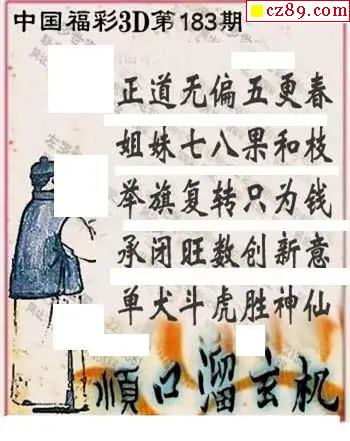 cz89.com
中国福彩3D第183期
正道无偏五更春
姐妹七八果和枝
举旗复转只为钱
承闭旺数创新意
单犬斗虎胜神仙
順口溜玄机